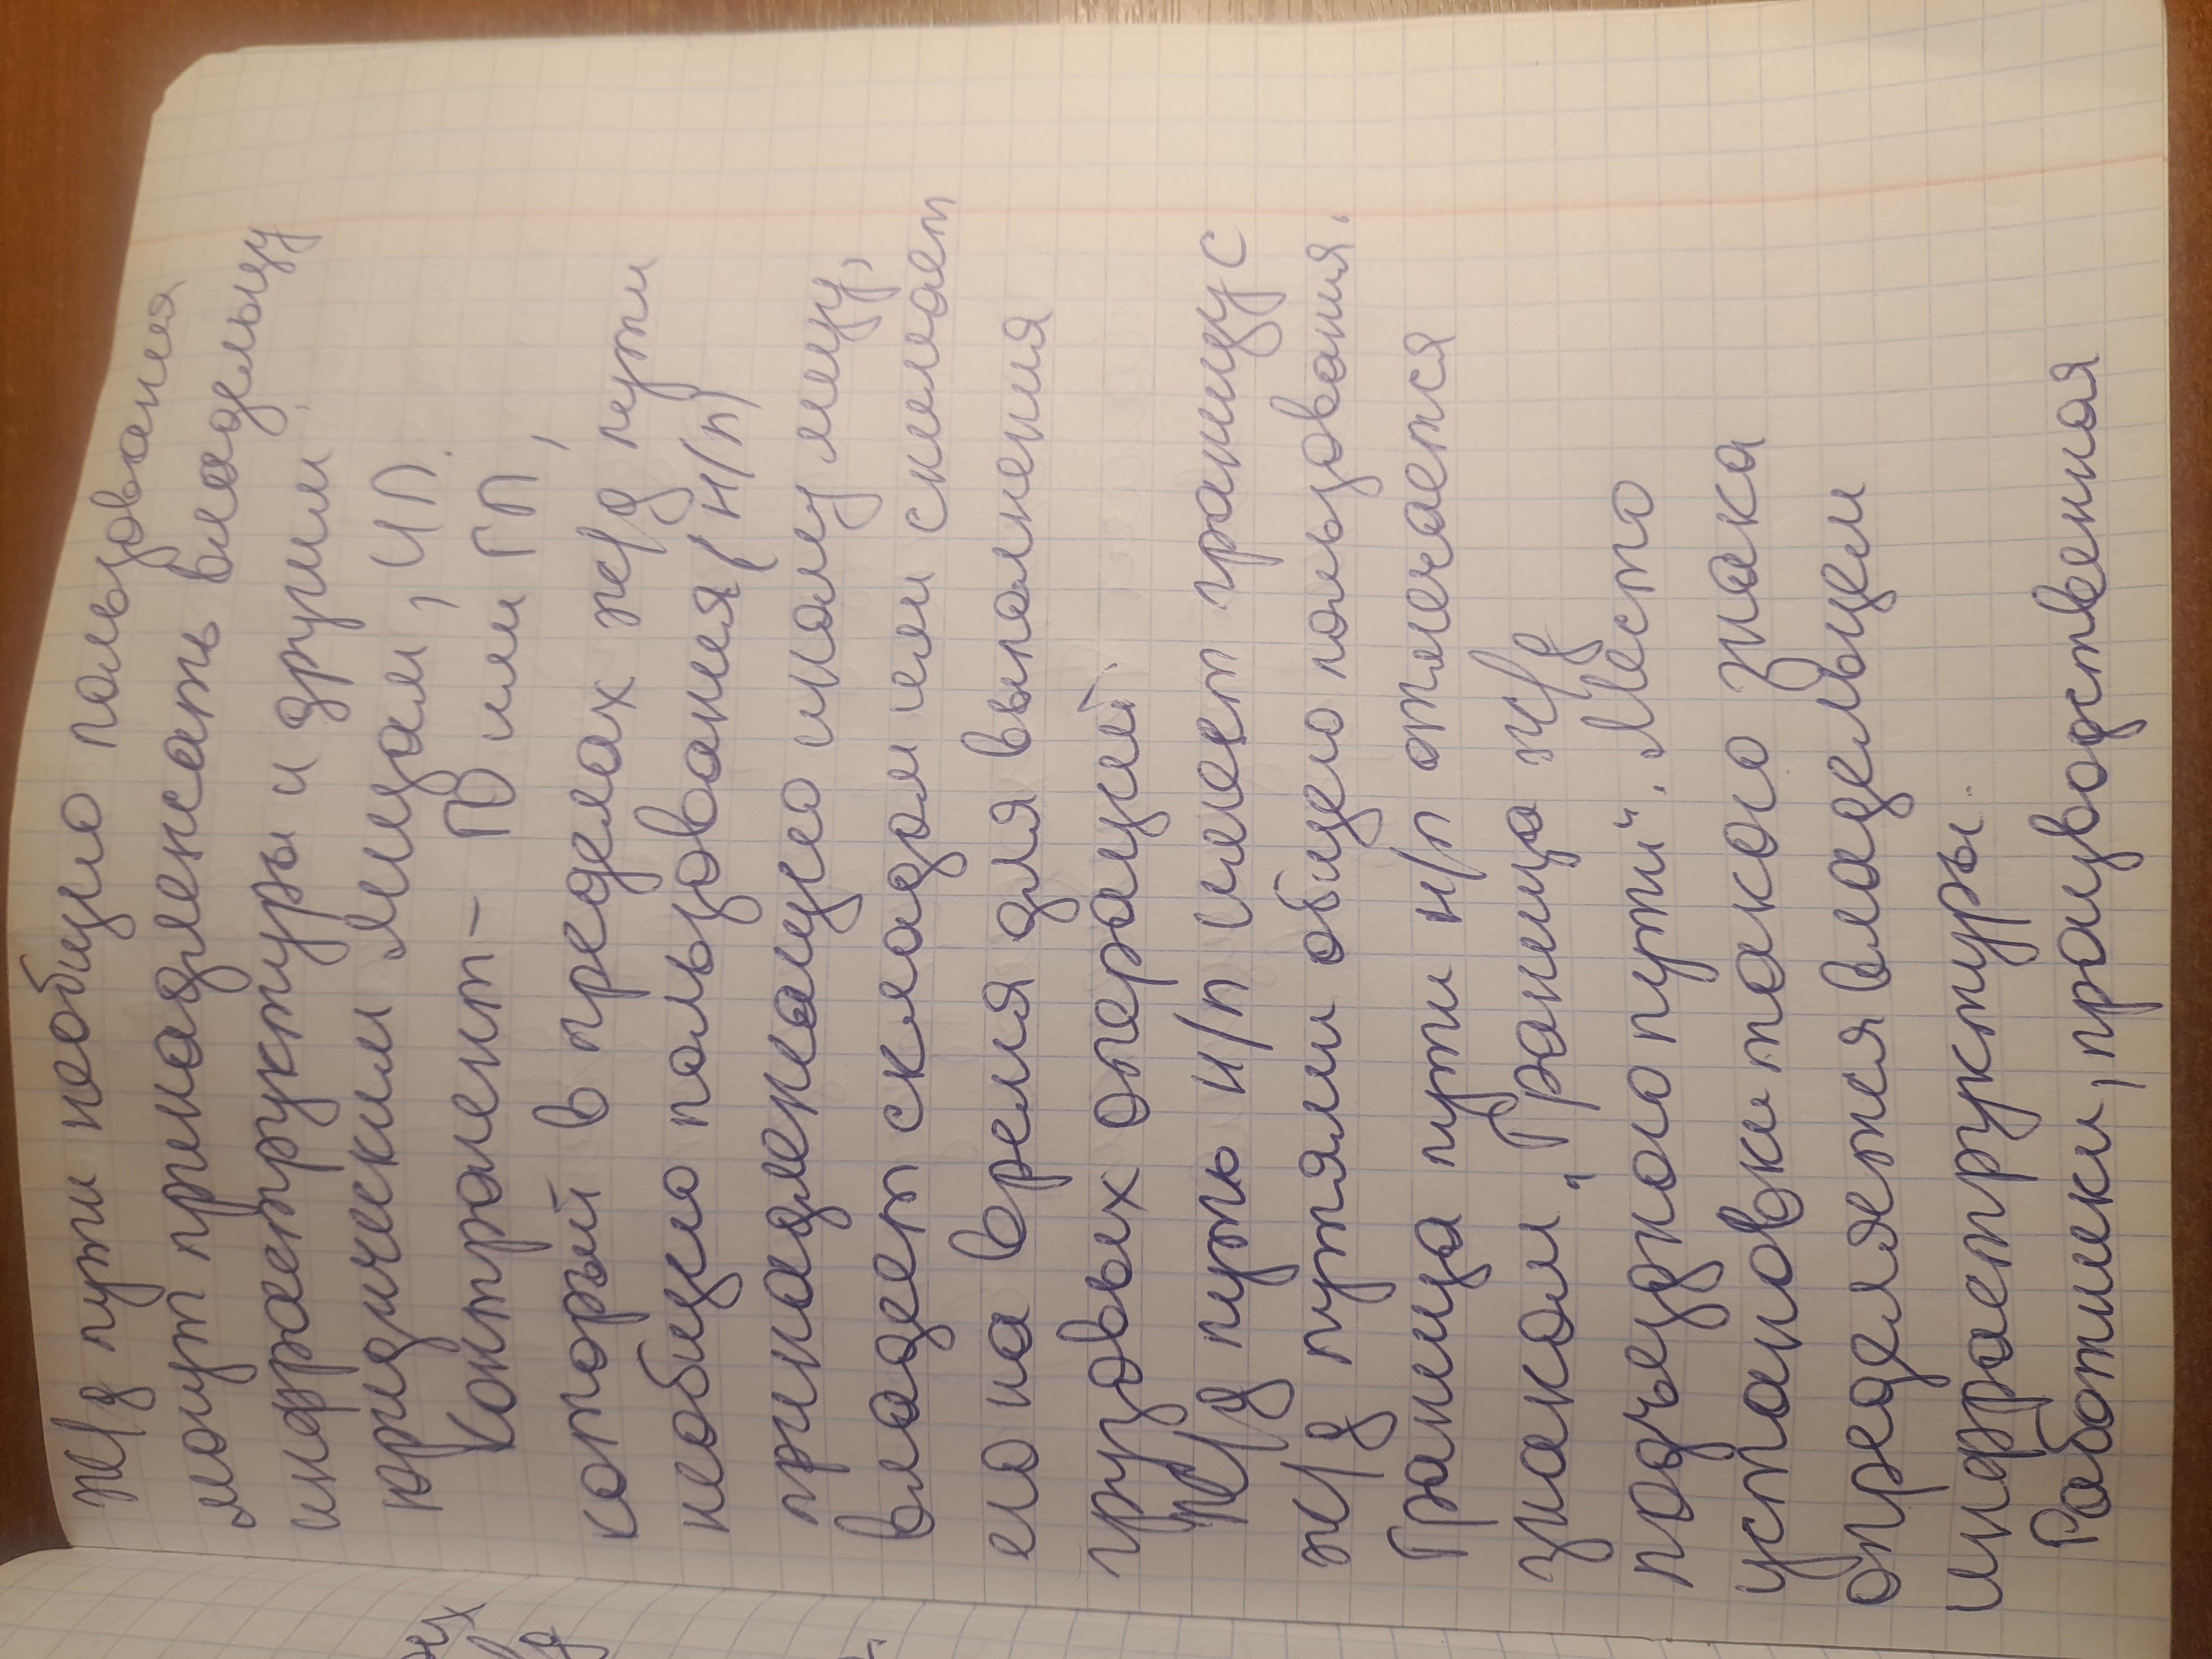 ж/д пути необщего пользования
могут принадлежать владельцу
инфраструктуры и другим
юридическим лицам, ИП.
Контрагент – ГО или ГП,
который в пределах ж/д пути
необщего пользования (н/п)
принадлежащего иному лицу,
владеет складом или снимает
его на время для выполнения
грузовых операций.
ж/д путь н/п имеет границу с
ж/д путями общего пользования.
Граница пути н/п отмечается
знаком „Граница ж/д
подъездного пути“. Место
установки такого знака
определяется владельцем
инфраструктуры.
Работники, производственная
ж/д